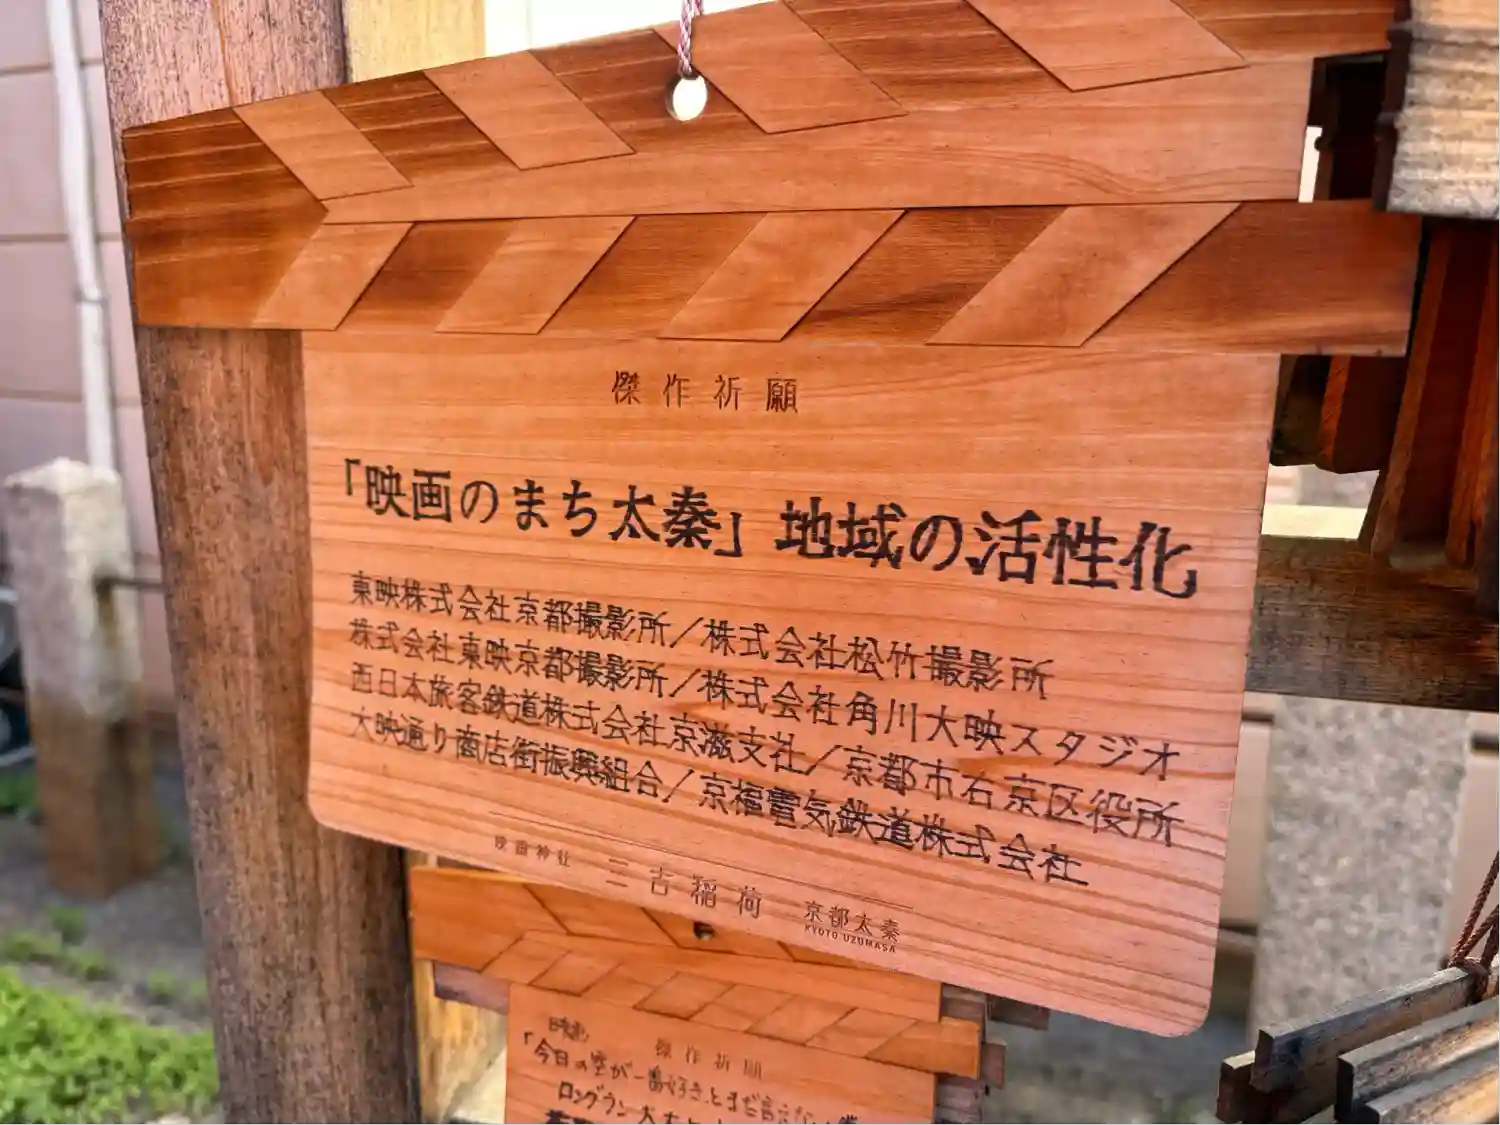 傑作祈願
「映画のまち太秦」地域の活性化
東映株式会社京都撮影所／株式会社松竹撮影所
株式会社東映京都撮影所／株式会社角川大映スタジオ
西日本旅客鉄道株式会社京滋支社／京都市右京区役所
大映通り商店街振興組合／京福電気鉄道株式会社
映画神社 三吉稲荷 京都太秦
KYOTO UZUMASA
傑作祈願
映画
「今日の空が一番好き、とまだ言えない
ロングラン